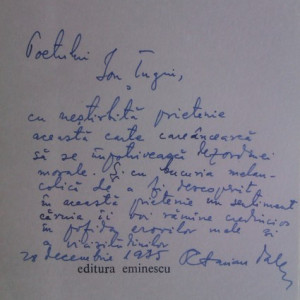 Poetului
Ion Țugui,
cu neștirbită prietenie
această carte care încearcă
să se împotrivească dezordinei
morale. Și cu bucuria melan-
colică de a fi descoperit
în această prietenie un sentiment
căruia îi voi rămîne credincios
în pofida erorilor mele și
a vicisitudinilor
20 decembrie 1985
editura eminescu